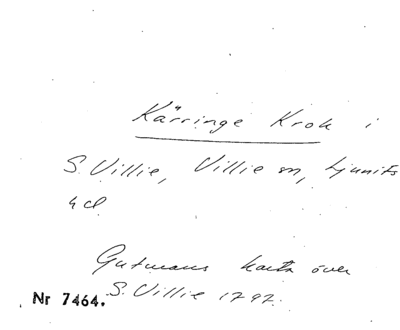 Kärringe Krok i
S. Villie, Villie sn, Ljunits
hd
Gutmans karta över
Nr 7464. S. Villie 1797.